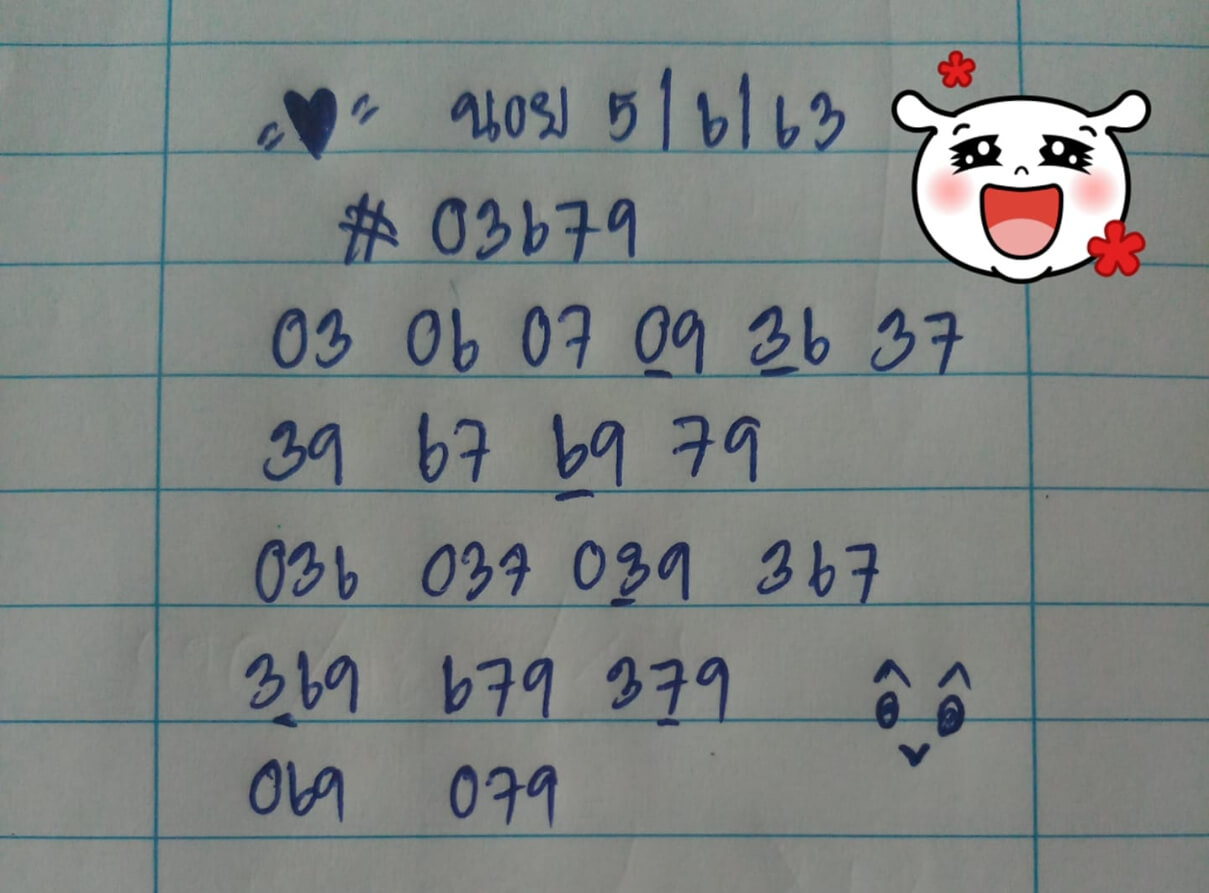 ฮานอย 5/6/63
# 03679
03 06 07 09 36 37
39 67 69 79
036 037 039 367
369 679 379
069 079